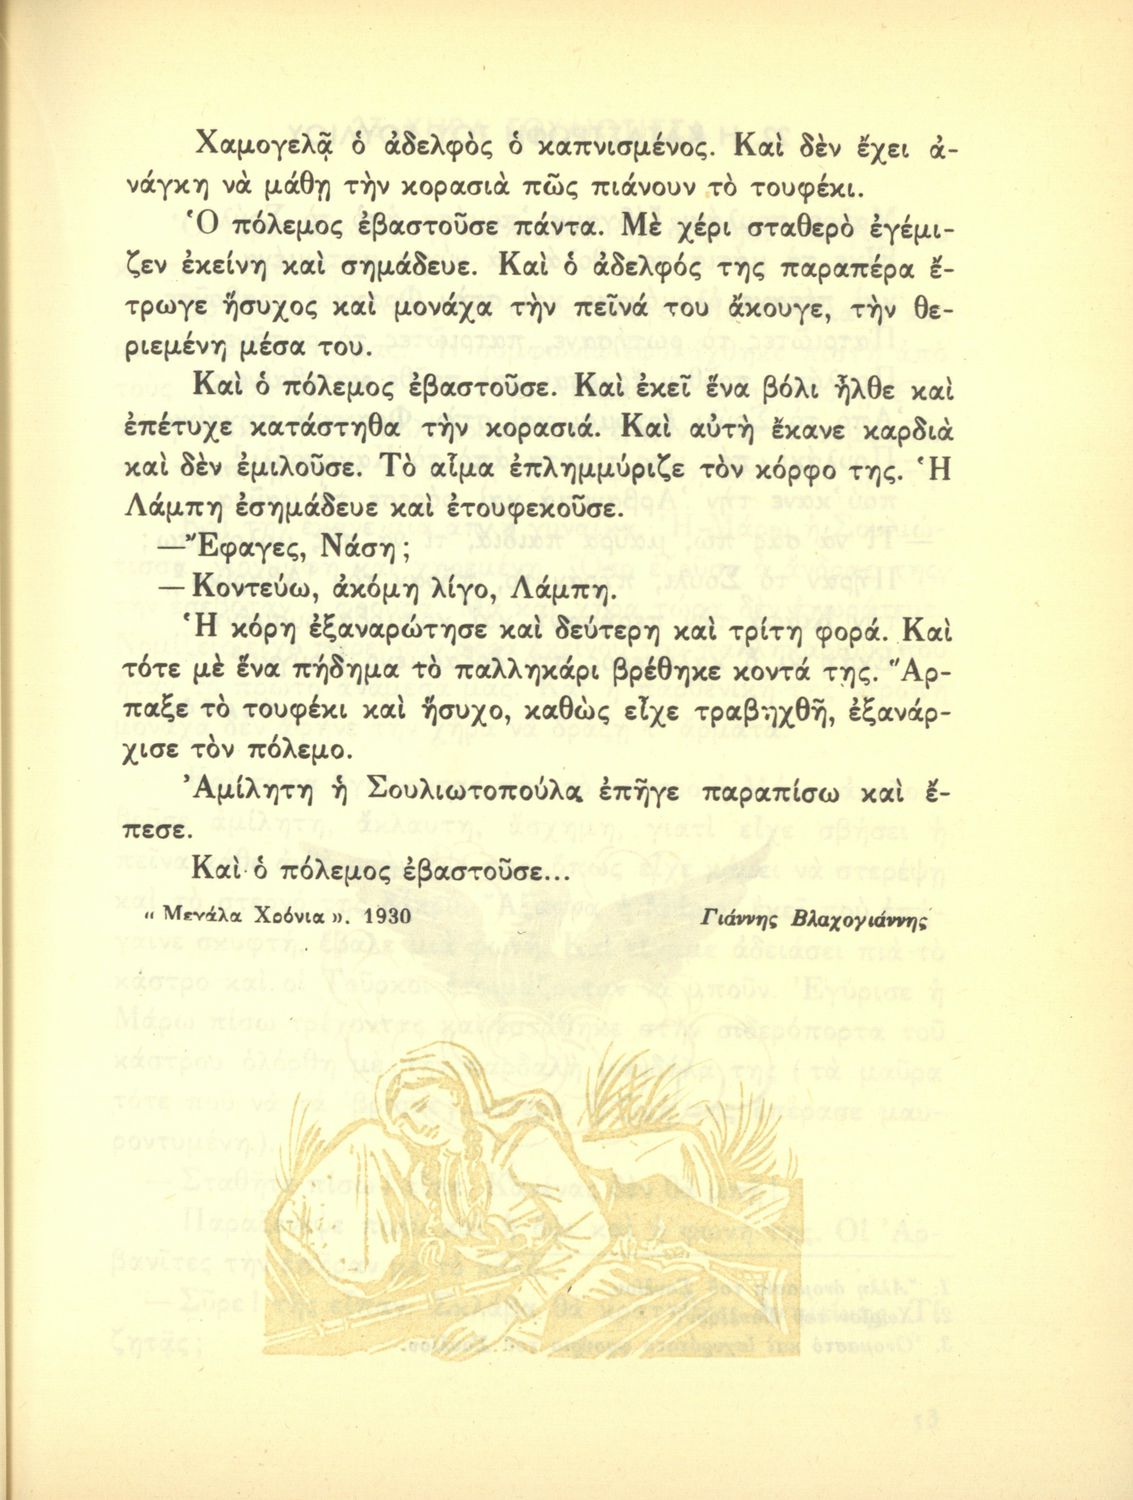 Χαμογελᾷ ὁ ἀδελφὸς ὁ καπνισμένος. Καὶ δὲν ἔχει ἀ-
νάγκη νὰ μάθῃ τὴν κορασιὰ πῶς πιάνουν τὸ τουφέκι.
Ὁ πόλεμος ἐβαστοῦσε πάντα. Μὲ χέρι σταθερὸ ἐγέμι-
ζεν ἐκείνη καὶ σημάδευε. Καὶ ὁ ἀδελφός της παραπέρα ἔ-
τρωγε ἥσυχος καὶ μονάχα τὴν πεῖνά του ἄκουγε, τὴν θε-
ριεμένη μέσα του.
Καὶ ὁ πόλεμος ἐβαστοῦσε. Καὶ ἐκεῖ ἕνα βόλι ἦλθε καὶ
ἐπέτυχε κατάστηθα τὴν κορασιά. Καὶ αὐτὴ ἔκανε καρδιὰ
καὶ δὲν ἐμιλοῦσε. Τὸ αἷμα ἐπλημμύριζε τὸν κόρφο της. Ἡ
Λάμπη ἐσημάδευε καὶ ἐτουφεκοῦσε.
—Ἔφαγες, Νάση;
—Κοντεύω, ἀκόμη λίγο, Λάμπη.
Ἡ κόρη ἐξαναρώτησε καὶ δεύτερη καὶ τρίτη φορά. Καὶ
τότε μὲ ἕνα πήδημα τὸ παλληκάρι βρέθηκε κοντά της. Ἅρ-
παξε τὸ τουφέκι καὶ ἥσυχο, καθὼς εἶχε τραβηχθῆ, ἐξανάρ-
χισε τὸν πόλεμο.
Ἀμίλητη ἡ Σουλιωτοπούλα ἐπῆγε παραπίσω καὶ ἔ-
πεσε.
Καὶ ὁ πόλεμος ἐβαστοῦσε...
« Μεγάλα Χρόνια ». 1930 Γιάννης Βλαχογιάννης